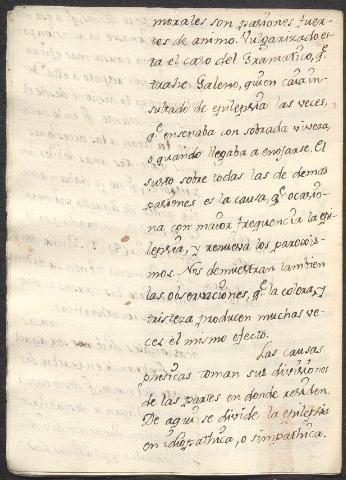 morales son pasiones fuer-
tes de animo. Vulgarizado es-
ta el caso del Gramatico, q.e
trahe Galeno, quien caia in-
sultado de epilepsia las veces,
q.e enseñaba con sobrada viveza,
o quando llegaba a enojarse. El
susto sobre todas las de demas
pasiones es la causa, q.e ocasio-
na con maior frequencia la epi-
lepsia, y renueva los paroxis-
mos. Nos demuestran tambien
las observaciones, q.e la colera, y
tristeza producen muchas ve-
ces el mismo efecto.
Las causas
phisicas toman sus divisiones
de las partes en donde residen.
De aqui se divide la epilepsia
en idiopathica, o simpathica.